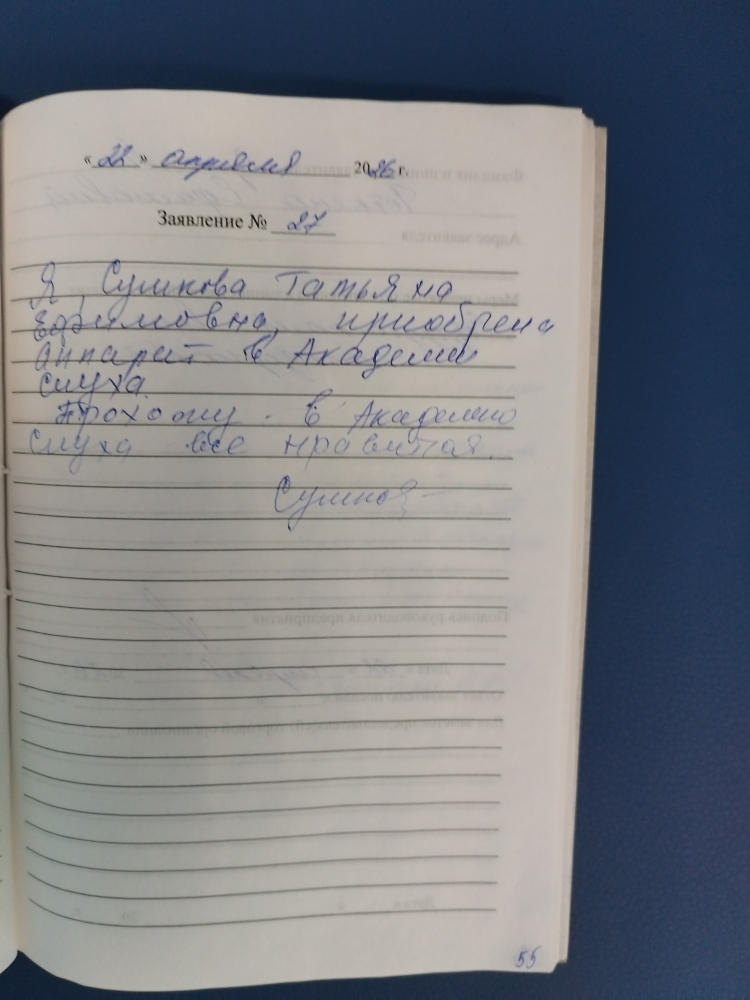 « 22 » апреля 2026 г.
Заявление № 27
Я, Сумкова Татьяна
Ефимовна, приобрела
аппарат в Академии
слуха.
Прохожу в Академию
слуха все нравится.
55